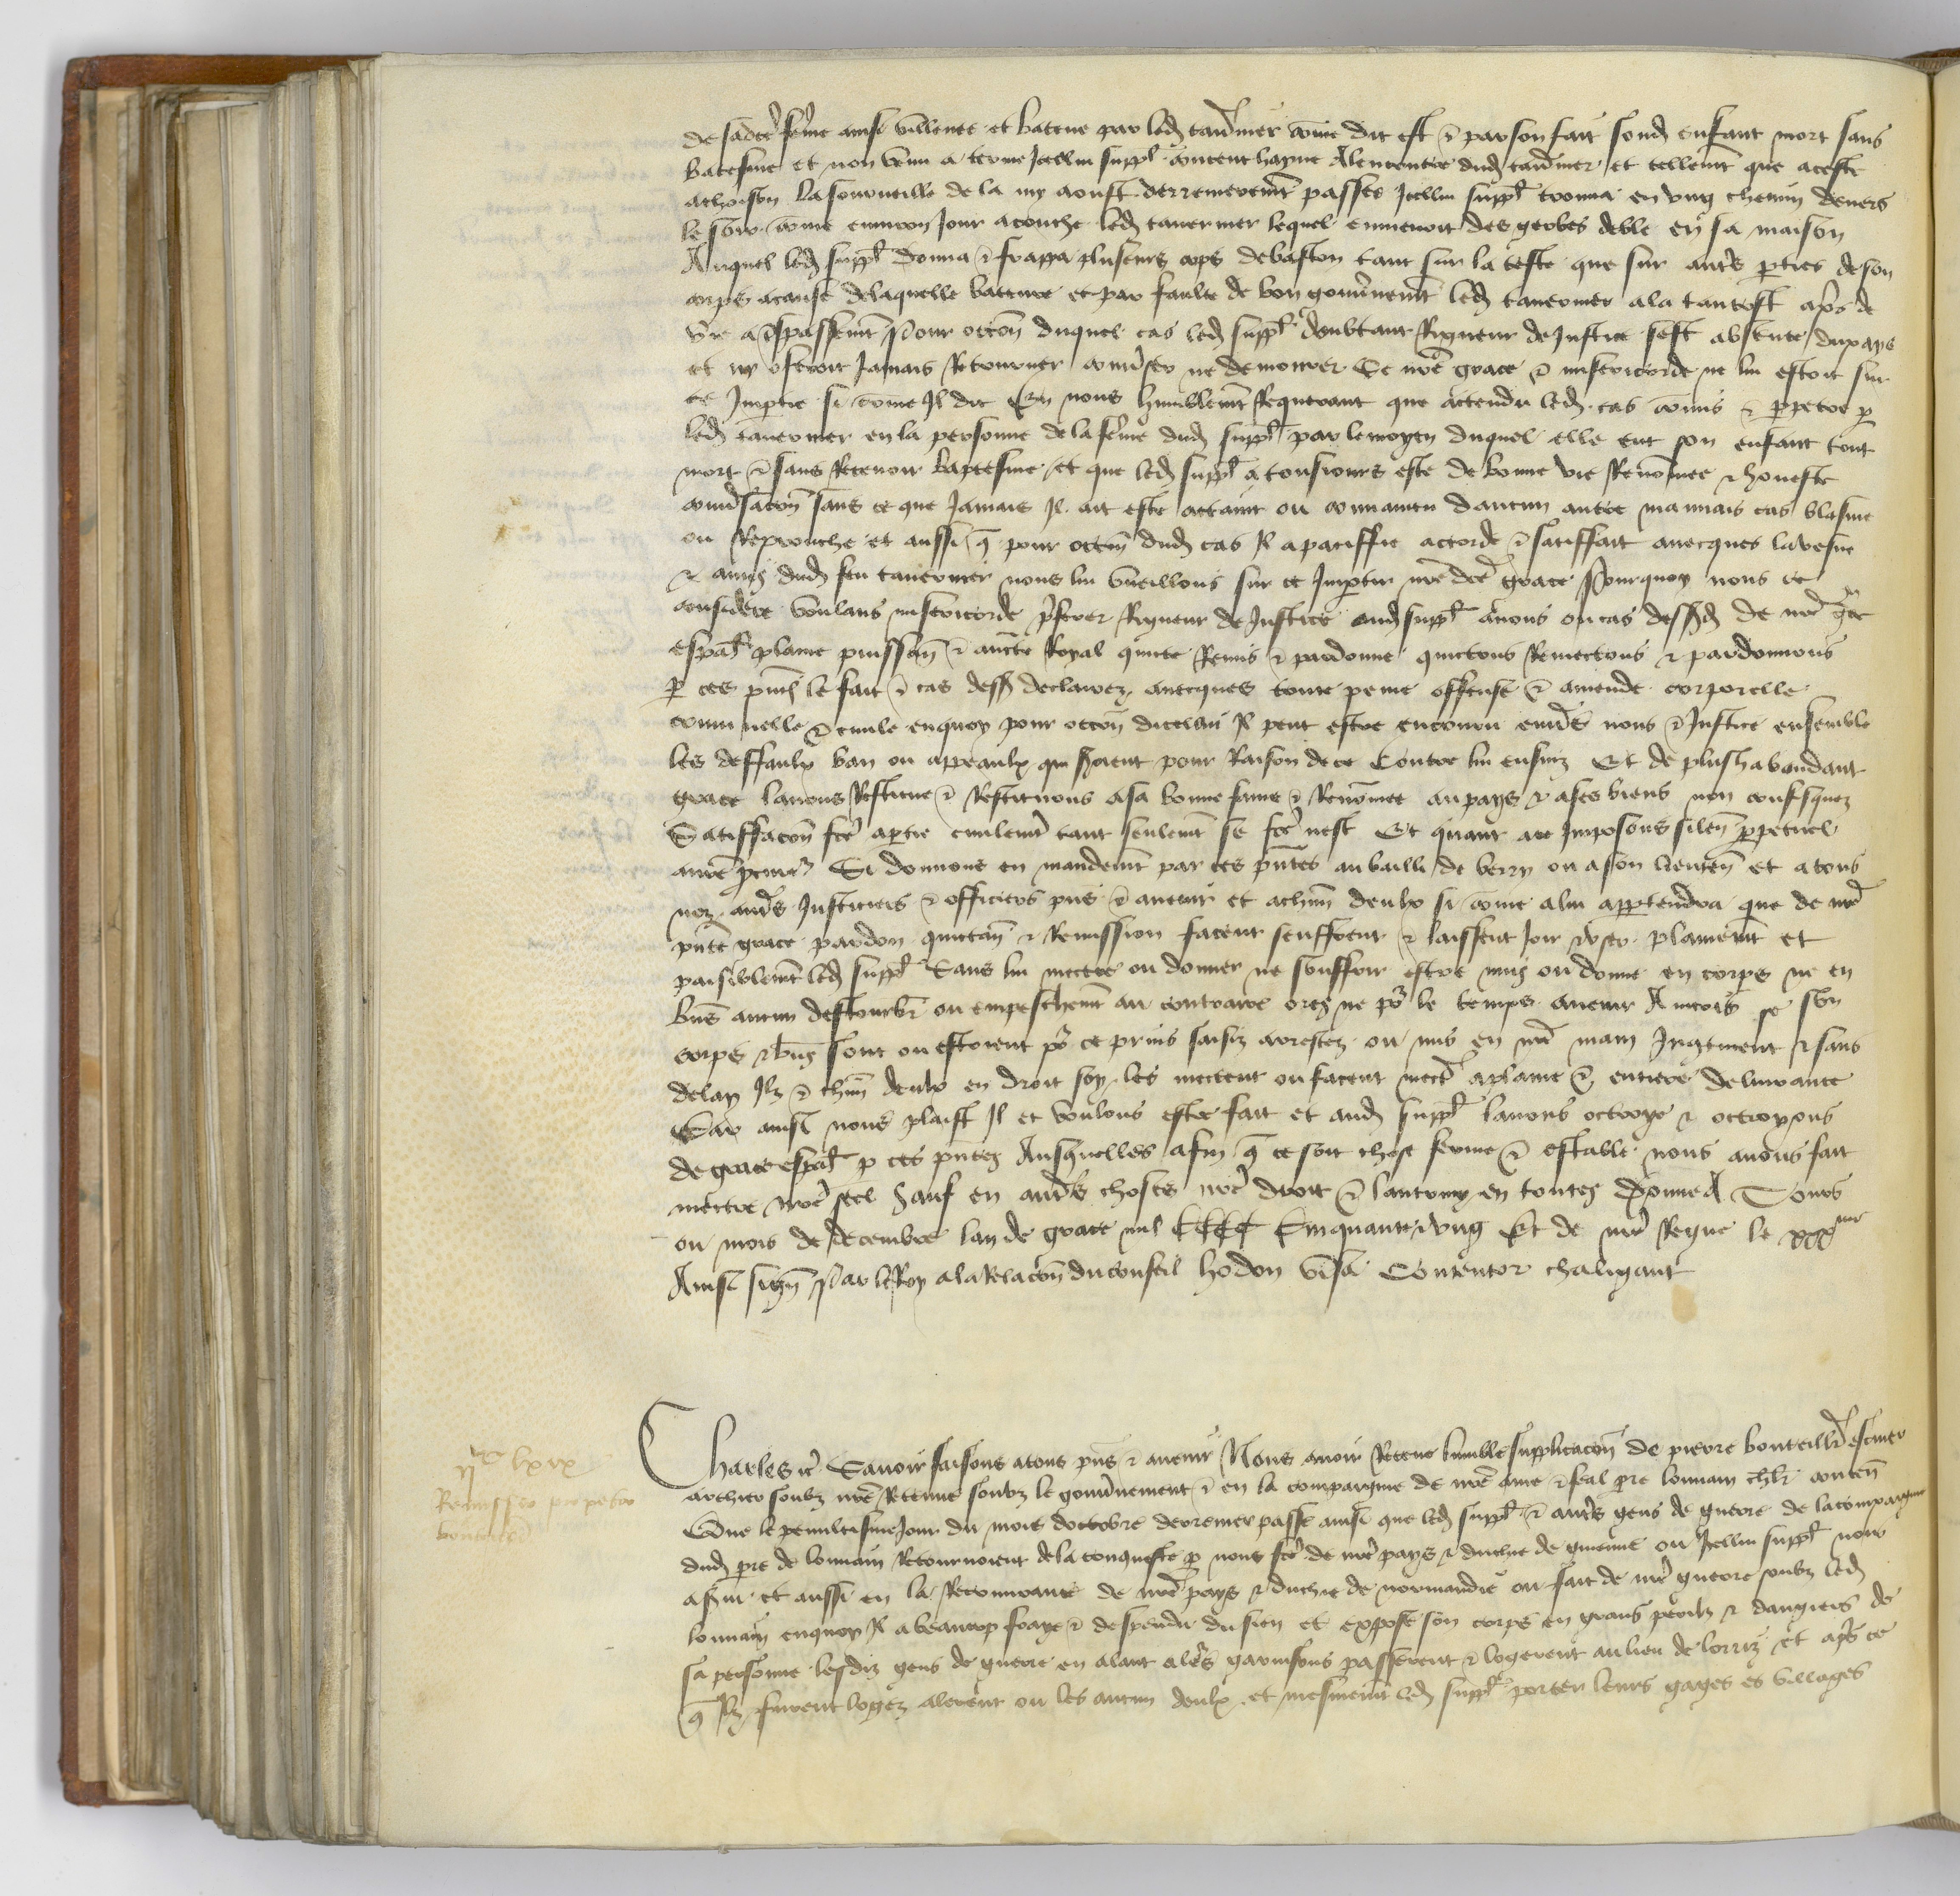 de sadcte feme ainsi villenee et batue par led tavernier come dit est et par son fait sond enfant mort sans
batesme et non venu a terme Icellui suppl conceut hayne alencontre dud tavernier et tellemt que a ceste
achoison la sourveille de la my aoust derrenierement passee Icellui suppl trouva en ung chemin devers
le soir come environ Jour couche led tavernier lequel enmenoit des gerbes de ble en sa maison
Auquel led suppl donna et frappa plusieurs cops de baston tant sur la teste que sur autres parties de son
corps a cause de laquelle bateure et par faulte de bon gouvernemt led tavernier ala tantost apres de
vie a trespassemt Pour occon duquel cas led suppl doubtant Rigueur de Justice sest absente du pays
et ny oseroit Jamais Retourner converser ne demourer Se nre grace et misericorde ne lui estoit sur
ce Impartie si come Il dit En nous humblemt Requerant que attendu led cas comis et perpetre par
led tavernier en la personne de la feme dud suppl par le moyen duquel elle eut son enfant tout
mort et sans Recevoir baptesme et que led suppl a tousiours este de bonne vie Renomee et honeste
conversacon sans ce que Jamais Il ait este attaint ou convaincu daucun autre mauvais cas blasme
ou Reprouche et aussi que pour occon dud cas Il a paciffie accorde et satisffait avecques la vefve
et amis dud feu tavernier nous lui vueillons sur ce Impartir nre dcte grace Pourquoy nous ce
considere voulans misericorde preferer Rigueur de Justice aud suppl avons ou cas dessusd de nre grace
espal plaine puissan et aucte Royal quicte Remis et pardonne quictons Remectons et pardonnons
par ces pntes le fait et cas dessus declairez avecques toute peine offense et amende corporelle
criminelle et civile en quoy pour occon dicellui Il peut estre encouru envers nous et Justice ensemble
les deffaulx ban ou appeaulx qui seroient pour Raison de ce Contre lui ensuiz Et de plus habondant
grace lavons Restitue et Restituons a sa bonne fame et Renomee au pays et a ses biens non confisquez
Satisffacon fcte a partie civilemt tant seulemt se fcte nest Et quant a ce Imposons silen perpetuel
a nre procureur Si donnons en mandemt par ces pntes au bailli de berry ou a son lieuten et a tous
noz autres Justiciers et officiers pns et avenir et a chun deulx si come a lui appartendra que de nre
pnte grace pardon quictan et Remission facent seuffrent et laissent Joir et user plainemt et
paisiblemt led suppl Sans lui mectre ou donner ne souffrir estre mis ou donne en corps ne en
biens aucun destourbr ou empeschemt au contraire ores ne pour le temps avenir Aincois se son
corps et biens sont ou estoient pour ce prins saisiz arrestez ou mis en nre main Inctement et sans
delay Ilz et chun deulx en droit soy les mectent ou facent mectre a plaine et entiere delivrance
Car ainsi nous plaist Il et voulons estre fait et aud suppl lavons octroye et octroyons
de grace espal par ces pntes Ausquelles afin que ce soit chose ferme et estable nous avons fait
mectre nre seel Sauf en autres choses nre droit et lautruy en toutes Donne A Tours
ou mois de decembre lan de grace mil CCCC Cinquante et ung Et de nre Regne le XXXme
Ainsi signe Par le Roy a la Relacon du conseil hodon visa Contentor chaligaut
IIc lxix
Remissio pro petro
bouteillier
Charles etc Savoir faisons a tous pns et avenir Nous avoir Receue humble supplicacon de pierre bouteillier escuier
archier soubz nre Retenue soubz le gouvernement et en la compaignie de nre ame et feal pre louvain chlr conten
Que le penultisme Jour du mois doctobre derrenier passe ainsi que led suppl et autres gens de guerre de la compaignie
dud pre de louvain Retournoient de la conqueste par nous fcte de nre pays et duchie de guienne ou Icellui suppl nous
a servi et aussi en la Recouvrance de nre pays et duchie de normandie ou fait de nre guerre soubz led
louvain en quoy Il a beaucop fraye et despendu du sien et expose son corps en grans perilz et dangiers de
sa personne lesdiz gens de guerre en alant a leurs garnisons passerent et logerent au lieu de lorriz et apres ce
que Ilz furent logez alerent ou les aucun deulx et mesmemt led suppl porter leurs gages es villages